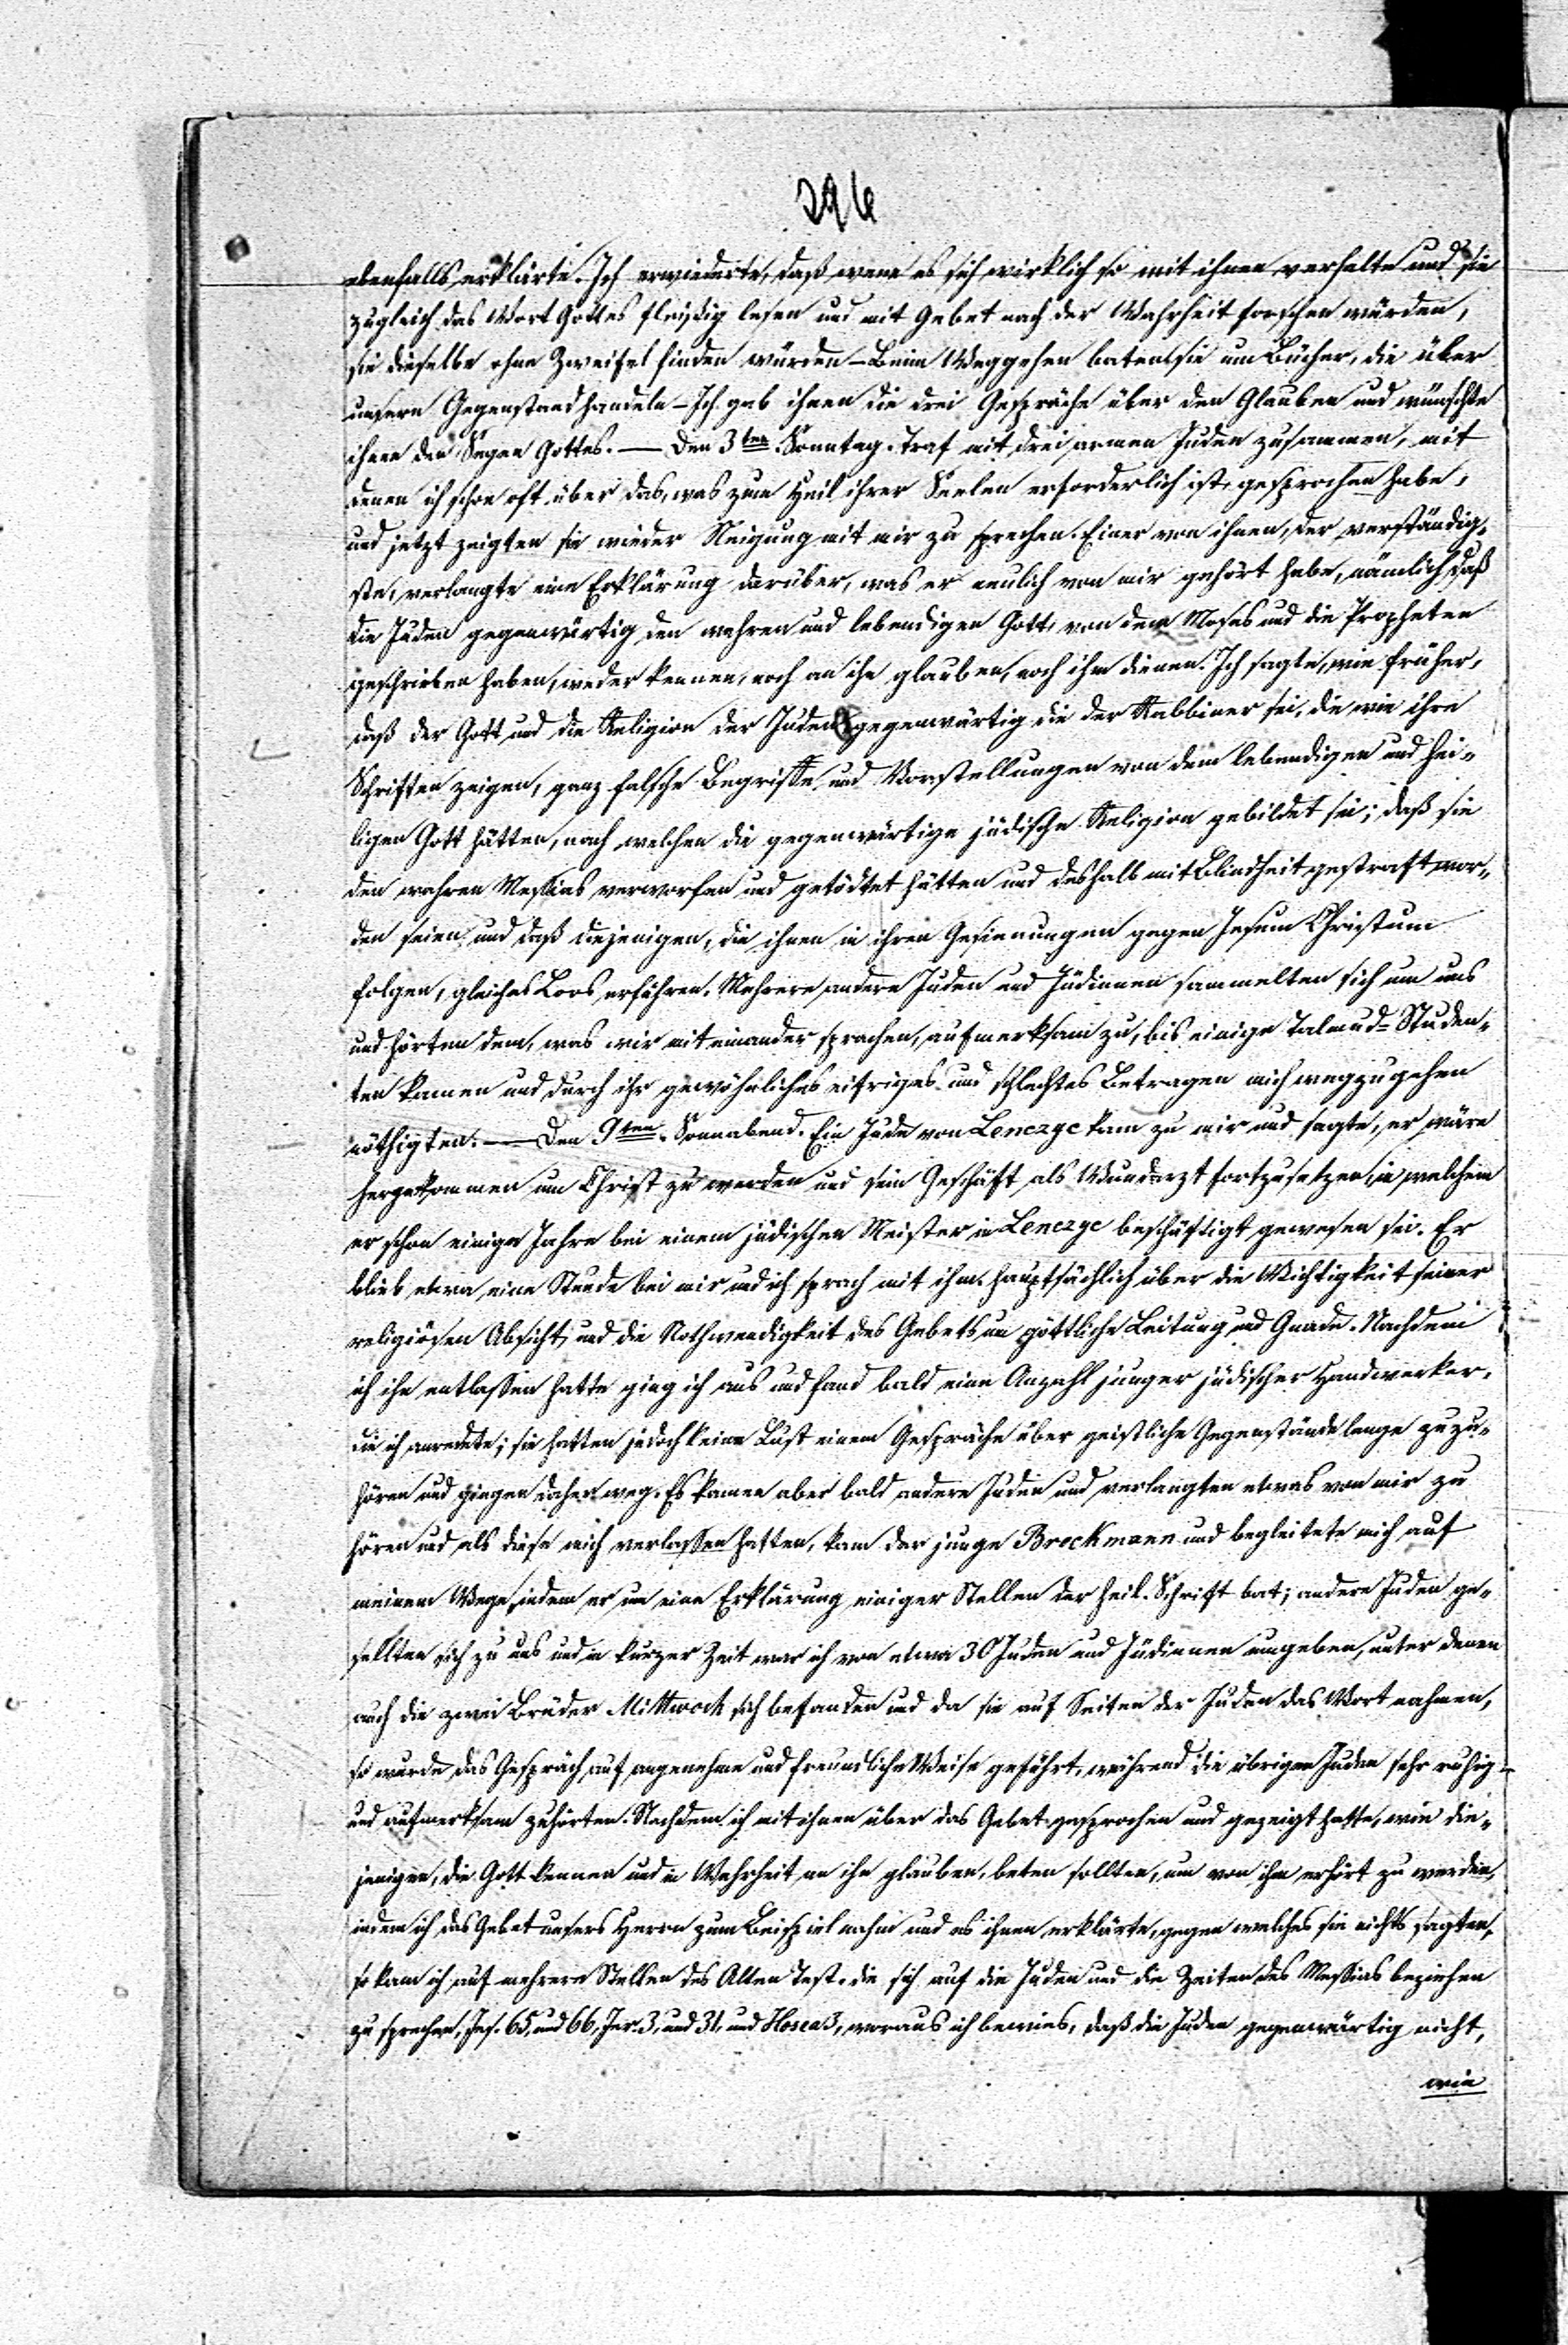 296
ebenfalls erklärte. Ich erwiederte, daß wenn es sich wirklich so mit ihnen verhalte und sie
zugleich das Wort Gottes fleißig lesen und mit Gebet nach der Wahrheit forschen würden,
sie dieselbe ohne Zweifel finden würden – Beim Weggehen baten sie um Bücher, die über
unsern Gegenstand handeln – Ich gab ihnen die drei Gespräche über den Glauben und wünschte
ihnen den Segen Gottes. — Den 3ten Sonntag. Traf mit drei armen Juden zusammen, mit
denen ich schon oft über das, was zum Heil ihrer Seelen erforderlich ist, gesprochen habe,
und jetzt zeigten sie wieder Neigung mit mir zu sprechen. Einer von ihnen, der verständig-
ste, verlangte eine Erklärung darüber, was er neulich von mir gehört habe, nämlich daß
die Juden gegenwärtig den wahren und lebendigen Gott, von dem Moses und die Propheten
geschrieben haben, weder kennen, noch an ihn glauben, noch ihm dienen. Ich sagte, wie früher,
daß der Gott und die Religion der Juden gegenwärtig die der Rabbiner sei, die wie ihre
Schriften zeigen, ganz falsche Begriffe und Vorstellungen von dem lebendigen und hei-
ligen Gott hätten, nach welchen die gegenwärtige jüdische Religion gebildet sei; daß sie
den wahren Messias verworfen und getödtet hätten und deshalb mit Blindheit gestraft wor-
den seien und daß diejenigen, die ihnen in ihren Gesinnungen gegen Jesum Christum
folgen, gleiches Loos erführen. Mehrere andere Juden und Jüdinnen sammelten sich um uns
und hörten dem, was wir mit einander sprachen, aufmerksam zu, bis einige Talmud-Studen-
ten kamen und durch ihr gewöhnliches eifriges und schlechtes Betragen mich wegzugehen
nöthigten. — Den 9ten Sonnabend. Ein Jude von Lenczyc kam zu mir und sagte, er wäre
hergekommen um Christ zu werden und sein Geschäft als Wundarzt fortzusetzen, in welchem
er schon einige Jahre bei einem jüdischen Meister in Lenczyc beschäftigt gewesen sei. Er
blieb etwa eine Stunde bei mir und ich sprach mit ihm hauptsächlich über die Wichtigkeit seiner
religiösen Absicht und die Nothwendigkeit des Gebets um göttliche Leitung und Gnade. Nachdem
ich ihn entlassen hatte ging ich aus und fand bald eine Anzahl junger jüdischer Handwerker,
die ich anredete; sie hatten jedoch keine Lust einem Gespräche über geistliche Gegenstände lange zuzu-
hören und gingen daher weg. Es kamen aber bald andere Juden und verlangten etwas von mir zu
hören und als diese mich verlassen hatten, kam der junge Brockmann und begleitete mich auf
meinem Wege, indem er um eine Erklärung einiger Stellen der heil. Schrift bat; andere Juden ge-
sellten sich zu uns und in kurzer Zeit war ich von etwa 30 Juden und Jüdinnen umgeben, unter denen
auch die zwei Brüder Mittwoch sich befanden und da sie auf Seiten der Juden das Wort nahmen,
so wurde das Gespräch auf angenehme und freundliche Weise geführt, während die übrigen Juden sehr ruhig
und aufmerksam zuhörten. Nachdem ich mit ihnen über das Gebet gesprochen und gezeigt hatte, wie die-
jenigen, die Gott kennen und in Wahrheit an ihn glauben, beten sollten, um von ihm erhört zu werden,
indem ich das Gebet unsers Herrn zum Beispiel nahm und es ihnen erklärte, gegen welches sie nichts sagten,
so kam ich auf mehrere Stellen des Alten Test. die sich auf die Juden und die Zeiten des Messias beziehen
zu sprechen, Jes. 65, und 66, Jer. 3, und 31, und Hosea 3, woraus ich bewies, daß die Juden gegenwärtig nicht,
wie